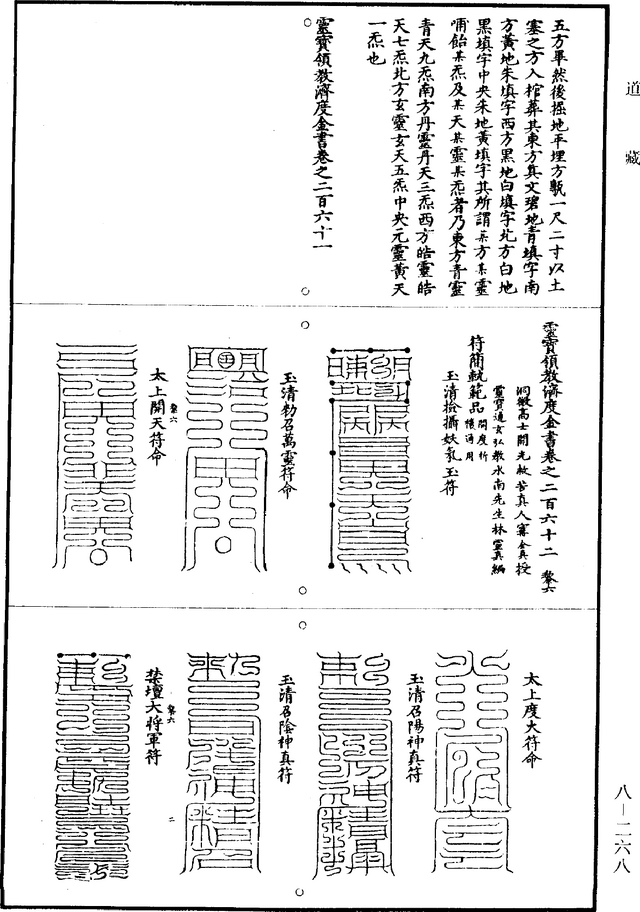 道藏
五方畢然後掘地平埋方甎一尺二寸以土
塞之方入棺葬其東方真文碧地青填字南
方黃地朱填字西方黑地白填字北方白地
黑填字中央朱地黃填字其所謂某方某靈
哺飴某炁及某天某靈某炁者乃東方青靈
青天九炁南方丹靈丹天三炁西方皓靈皓
天七炁北方玄靈玄天五炁中央元靈黃天
一炁也
靈寶領教濟度金書卷之二百六十一
靈寶領教濟度金書卷之二百六十二
洞微高士開光救苦真人甯全真授
靈寶通玄弘教水南先生林靈真編
符簡軌範品
開度祈禳通用
玉清檢攝妖氣玉符
玉清勑召萬靈符命
太上開天符命
太上度火符命
玉清召陽神真符
玉清召陰神真符
禁壇大將軍符
二
八—二六八